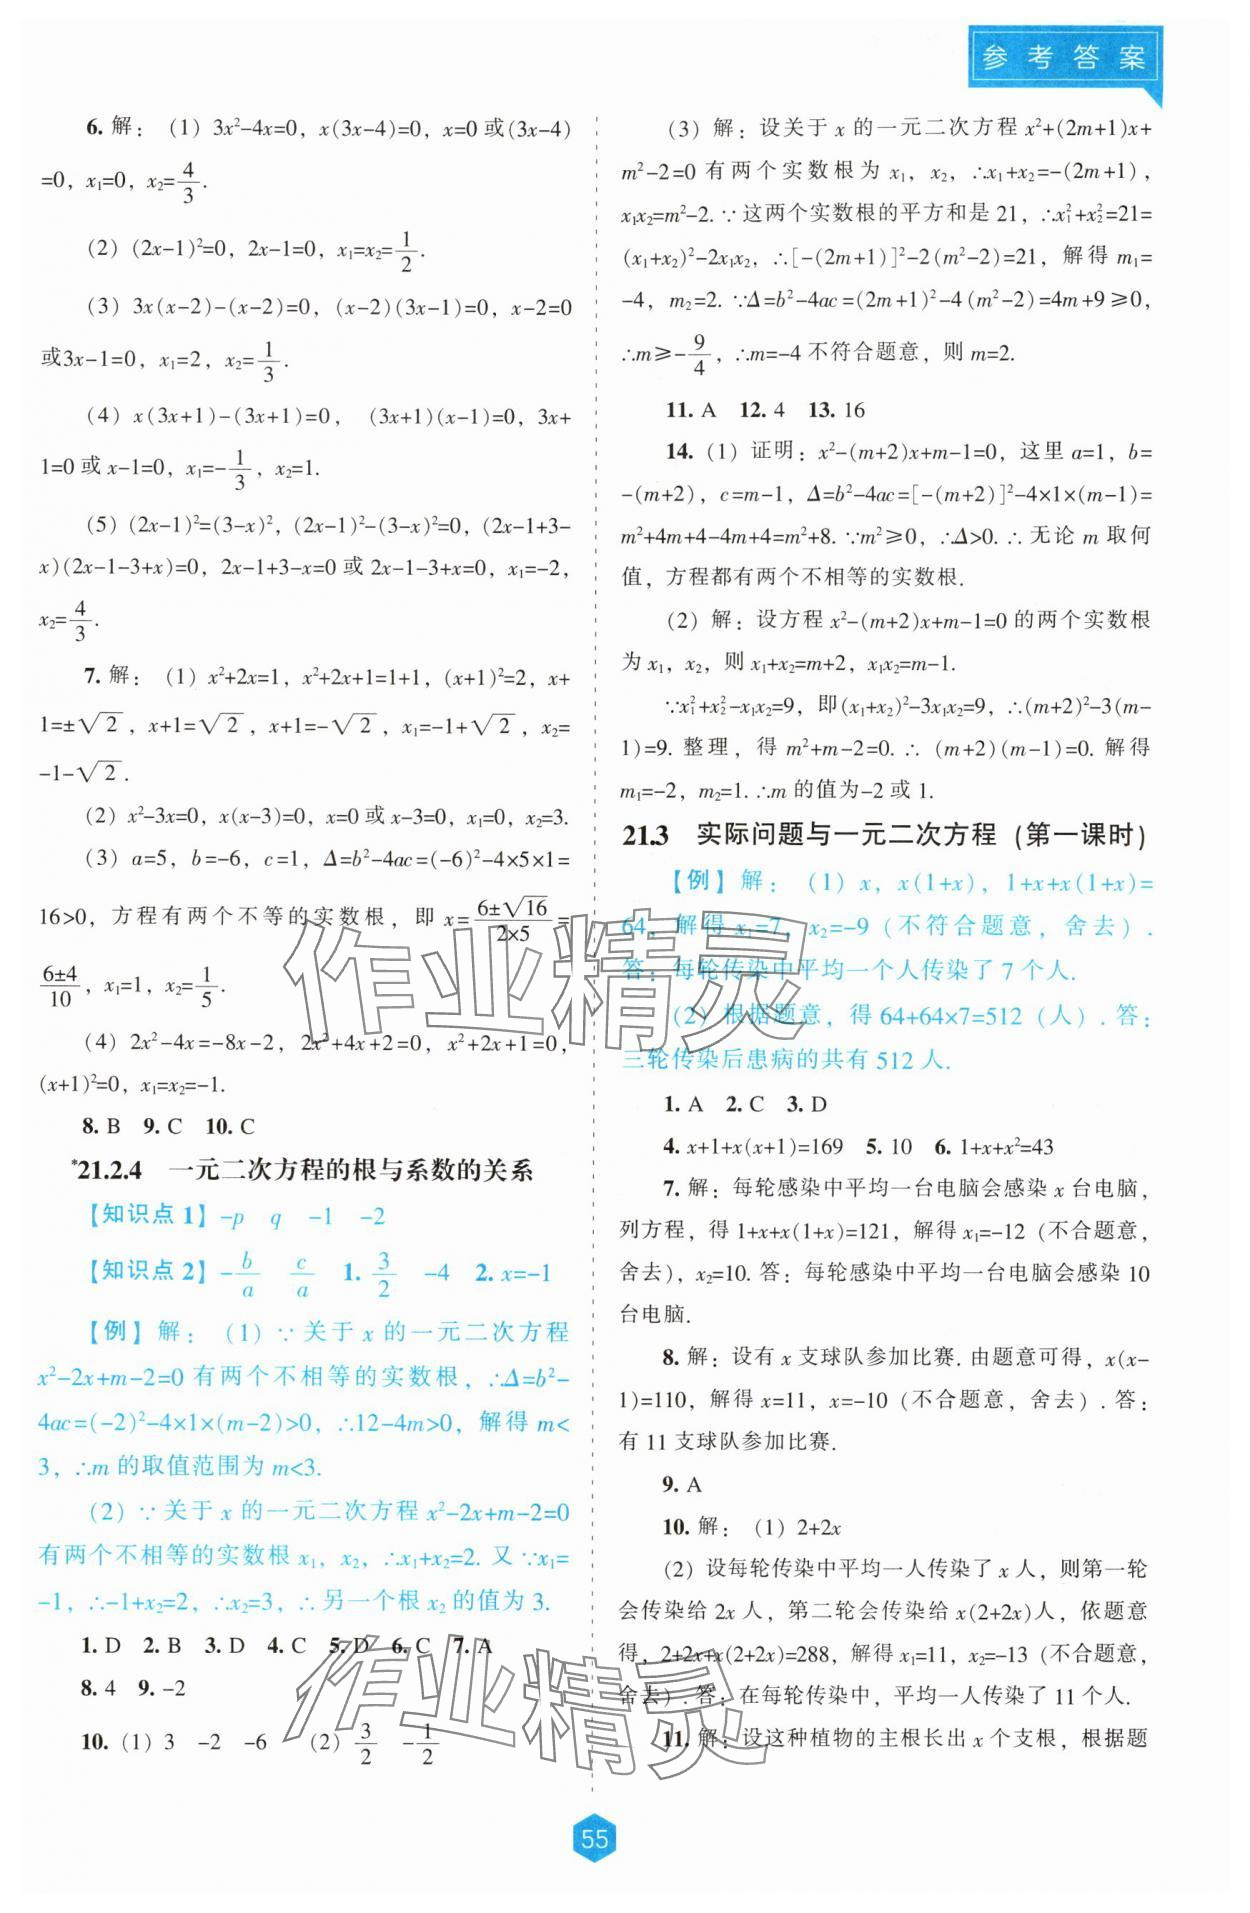 参考答案
6. 解：（1）3x²-4x=0，x(3x-4)=0，x=0 或(3x-4)
=0，x₁=0，x₂=4/3.
（2）(2x-1)²=0，2x-1=0，x₁=x₂=1/2.
（3）3x(x-2)-(x-2)=0，(x-2)(3x-1)=0，x-2=0
或3x-1=0，x₁=2，x₂=1/3.
（4）x(3x+1)-(3x+1)=0，(3x+1)(x-1)=0，3x+
1=0 或 x-1=0，x₁=-1/3，x₂=1.
（5）(2x-1)²=(3-x)²，(2x-1)²-(3-x)²=0，(2x-1+3-
x)(2x-1-3+x)=0，2x-1+3-x=0 或 2x-1-3+x=0，x₁=-2，
x₂=4/3.
7. 解：（1）x²+2x=1，x²+2x+1=1+1，(x+1)²=2，x+
1=±√2，x+1=√2，x+1=-√2，x₁=-1+√2，x₂=
-1-√2.
（2）x²-3x=0，x(x-3)=0，x=0 或 x-3=0，x₁=0，x₂=3.
（3）a=5，b=-6，c=1，Δ=b²-4ac=(-6)²-4×5×1=
16>0，方程有两个不等的实数根，即 x=(6±√16)/(2×5)=
(6±4)/10，x₁=1，x₂=1/5.
（4）2x²-4x=-8x-2，2x²+4x+2=0，x²+2x+1=0，
(x+1)²=0，x₁=x₂=-1.
8. B 9. C 10. C
*21.2.4 一元二次方程的根与系数的关系
【知识点 1】-p q -1 -2
【知识点 2】-b/a c/a 1. 3/2 -4 2. x=-1
【例】解：（1）∵关于 x 的一元二次方程
x²-2x+m-2=0 有两个不相等的实数根，∴Δ=b²-
4ac=(-2)²-4×1×(m-2)>0，∴12-4m>0，解得 m<
3，∴m 的取值范围为 m<3.
（2）∵关于 x 的一元二次方程 x²-2x+m-2=0
有两个不相等的实数根 x₁，x₂，∴x₁+x₂=2. 又∵x₁=
-1，∴-1+x₂=2，∴x₂=3，∴另一个根 x₂ 的值为 3.
1. D 2. B 3. D 4. C 5. D 6. C 7. A
8. 4 9. -2
10.（1）3 -2 -6 （2）3/2 -1/2
（3）解：设关于 x 的一元二次方程 x²+(2m+1)x+
m²-2=0 有两个实数根为 x₁，x₂，∴x₁+x₂=-(2m+1)，
x₁x₂=m²-2. ∵这两个实数根的平方和是 21，∴x₁²+x₂²=21=
(x₁+x₂)²-2x₁x₂，∴[-(2m+1)]²-2(m²-2)=21，解得 m₁=
-4，m₂=2. ∵Δ=b²-4ac=(2m+1)²-4(m²-2)=4m+9≥0，
∴m≥-9/4，∴m=-4 不符合题意，则 m=2.
11. A 12. 4 13. 16
14.（1）证明：x²-(m+2)x+m-1=0，这里 a=1，b=
-(m+2)，c=m-1，Δ=b²-4ac=[-(m+2)]²-4×1×(m-1)=
m²+4m+4-4m+4=m²+8. ∵m²≥0，∴Δ>0. ∴无论 m 取何
值，方程都有两个不相等的实数根.
（2）解：设方程 x²-(m+2)x+m-1=0 的两个实数根
为 x₁，x₂，则 x₁+x₂=m+2，x₁x₂=m-1.
∵x₁²+x₂²-x₁x₂=9，即(x₁+x₂)²-3x₁x₂=9，∴(m+2)²-3(m-
1)=9. 整理，得 m²+m-2=0. ∴(m+2)(m-1)=0. 解得
m₁=-2，m₂=1. ∴m 的值为-2 或 1.
21.3 实际问题与一元二次方程（第一课时）
【例】解：（1）x，x(1+x)，1+x+x(1+x)=
64，解得 x₁=7，x₂=-9（不符合题意，舍去）.
答：每轮传染中平均一个人传染了 7 个人.
（2）根据题意，得 64+64×7=512（人）. 答：
三轮传染后患病的共有 512 人.
1. A 2. C 3. D
4. x+1+x(x+1)=169 5. 10 6. 1+x+x²=43
7. 解：每轮感染中平均一台电脑会感染 x 台电脑，
列方程，得 1+x+x(1+x)=121，解得 x₁=-12（不合题意，
舍去），x₂=10. 答：每轮感染中平均一台电脑会感染 10
台电脑.
8. 解：设有 x 支球队参加比赛. 由题意可得，x(x-
1)=110，解得 x=11，x=-10（不合题意，舍去）. 答：
有 11 支球队参加比赛.
9. A
10. 解：（1）2+2x
（2）设每轮传染中平均一人传染了 x 人，则第一轮
会传染给 2x 人，第二轮会传染给 x(2+2x)人，依题意
得，2+2x+x(2+2x)=288，解得 x₁=11，x₂=-13（不合题意，
舍去）. 答：在每轮传染中，平均一人传染了 11 个人.
11. 解：设这种植物的主根长出 x 个支根，根据题
作业精灵
作业精灵
55